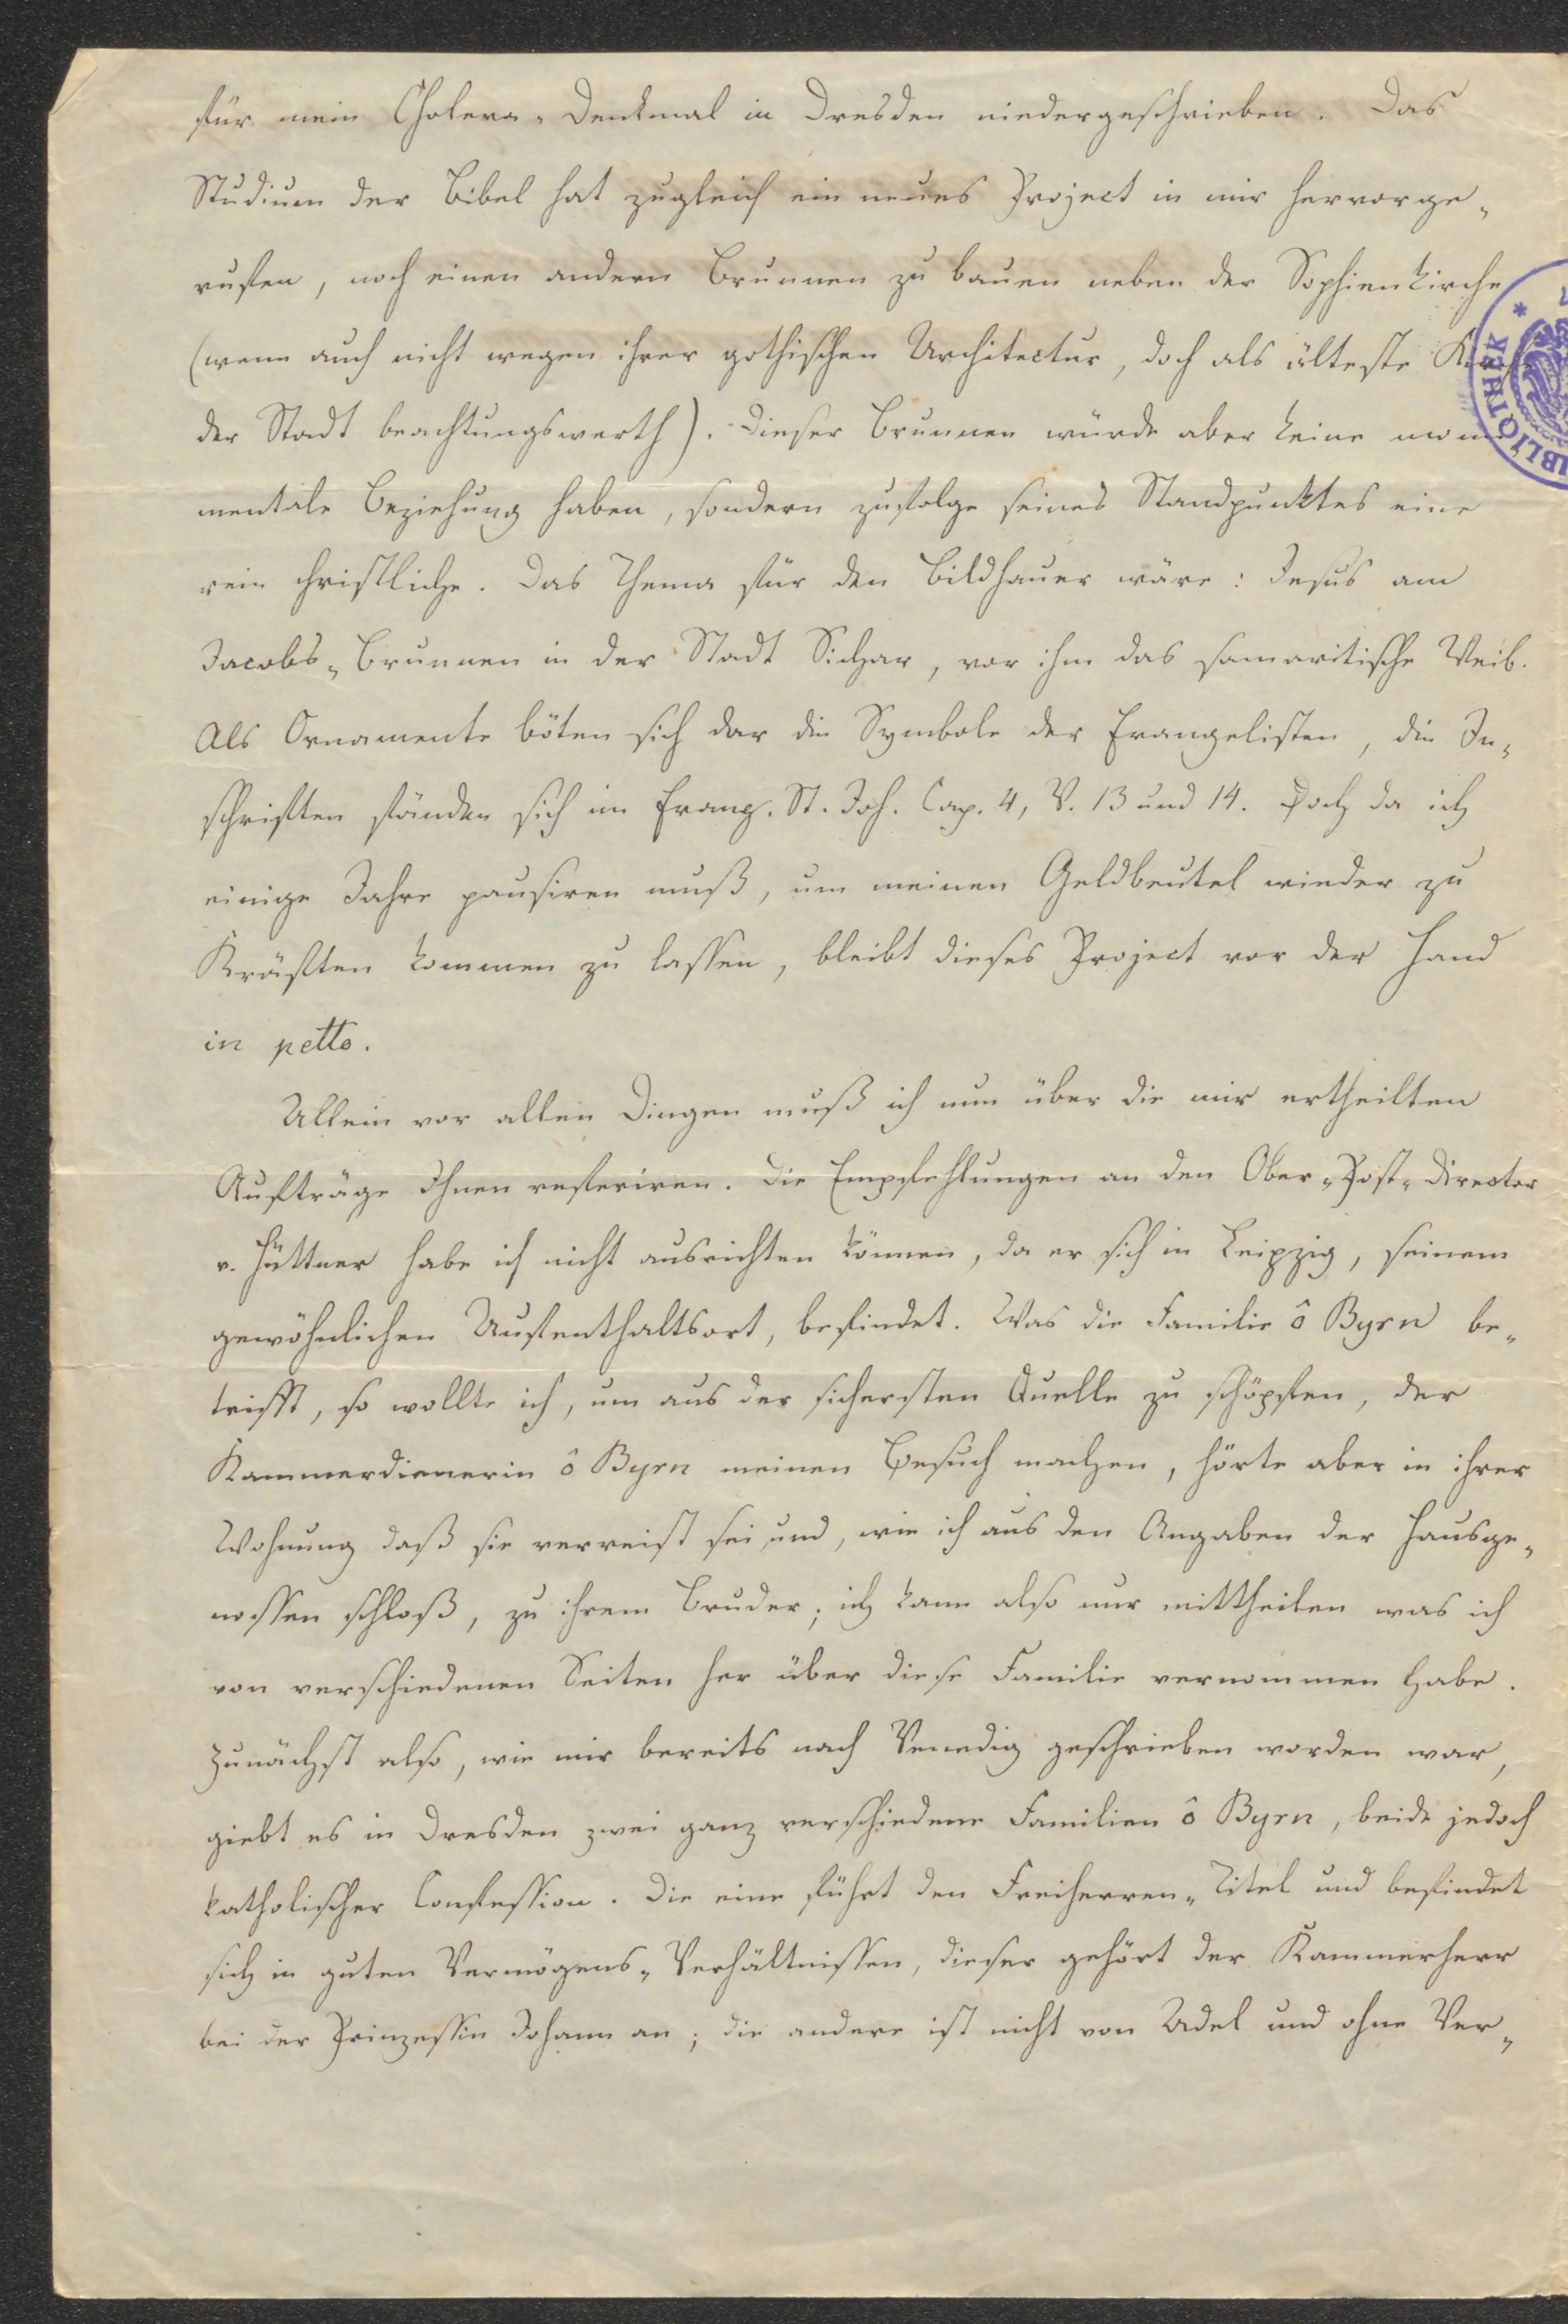 für mein Cholera-Denkmal in Dresden niedergeschrieben. Das
Studium der Bibel hat zugleich ein neues Project in mir hervorge-
rufen, noch einen andern Brunnen zu bauen neben der Sophienkirche
(wenn auch nicht wegen ihrer gothischen Architectur, doch als älteste Kirche
der Stadt beachtungswerth). Dieser Brunnen würde aber keine monu-
mentale Beziehung haben, sondern zufolge seines Standpunktes eine
rein christliche. Das Thema für den Bildhauer wäre: Jesus am
Jacobs-Brunnen in der Stadt Sichar, vor ihm das samaritische Weib.
Als Ornamente böten sich dar die Symbole der Evangelisten, die In-
schriften fänden sich im Evang. St. Joh. Cap. 4, V. 13 und 14. Doch da ich
einige Jahre pausiren muß, um meinen Geldbeutel wieder zu
Kräften kommen zu lassen, bleibt dieses Project vor der Hand
in petto.
Allein vor allen Dingen muß ich nun über die mir ertheilten
Aufträge Ihnen referiren. Die Empfehlungen an den Ober-Post-Director
v. Hüttner habe ich nicht ausrichten können, da er sich in Leipzig, seinem
gewöhnlichen Aufenthaltsort, befindet. Was die Familie ô Byrn be-
trifft, so wollte ich, um aus der sichersten Quelle zu schöpfen, der
Kammerdienerin ô Byrn meinen Besuch machen, hörte aber in ihrer
Wohnung daß sie verreist sei und, wie ich aus den Angaben der Hausge-
nossen schloß, zu ihrem Bruder; ich kann also nur mittheilen was ich
von verschiedenen Seiten her über diese Familie vernommen habe.
Zunächst also, wie mir bereits nach Venedig geschrieben worden war,
giebt es in Dresden zwei ganz verschiedene Familien ô Byrn, beide jedoch
katholischer Confession. Die eine führt den Freiherren-Titel und befindet
sich in guten Vermögens-Verhältnissen, dieser gehört der Kammerherr
bei der Prinzessin Johann an; die andere ist nicht von Adel und ohne Ver-